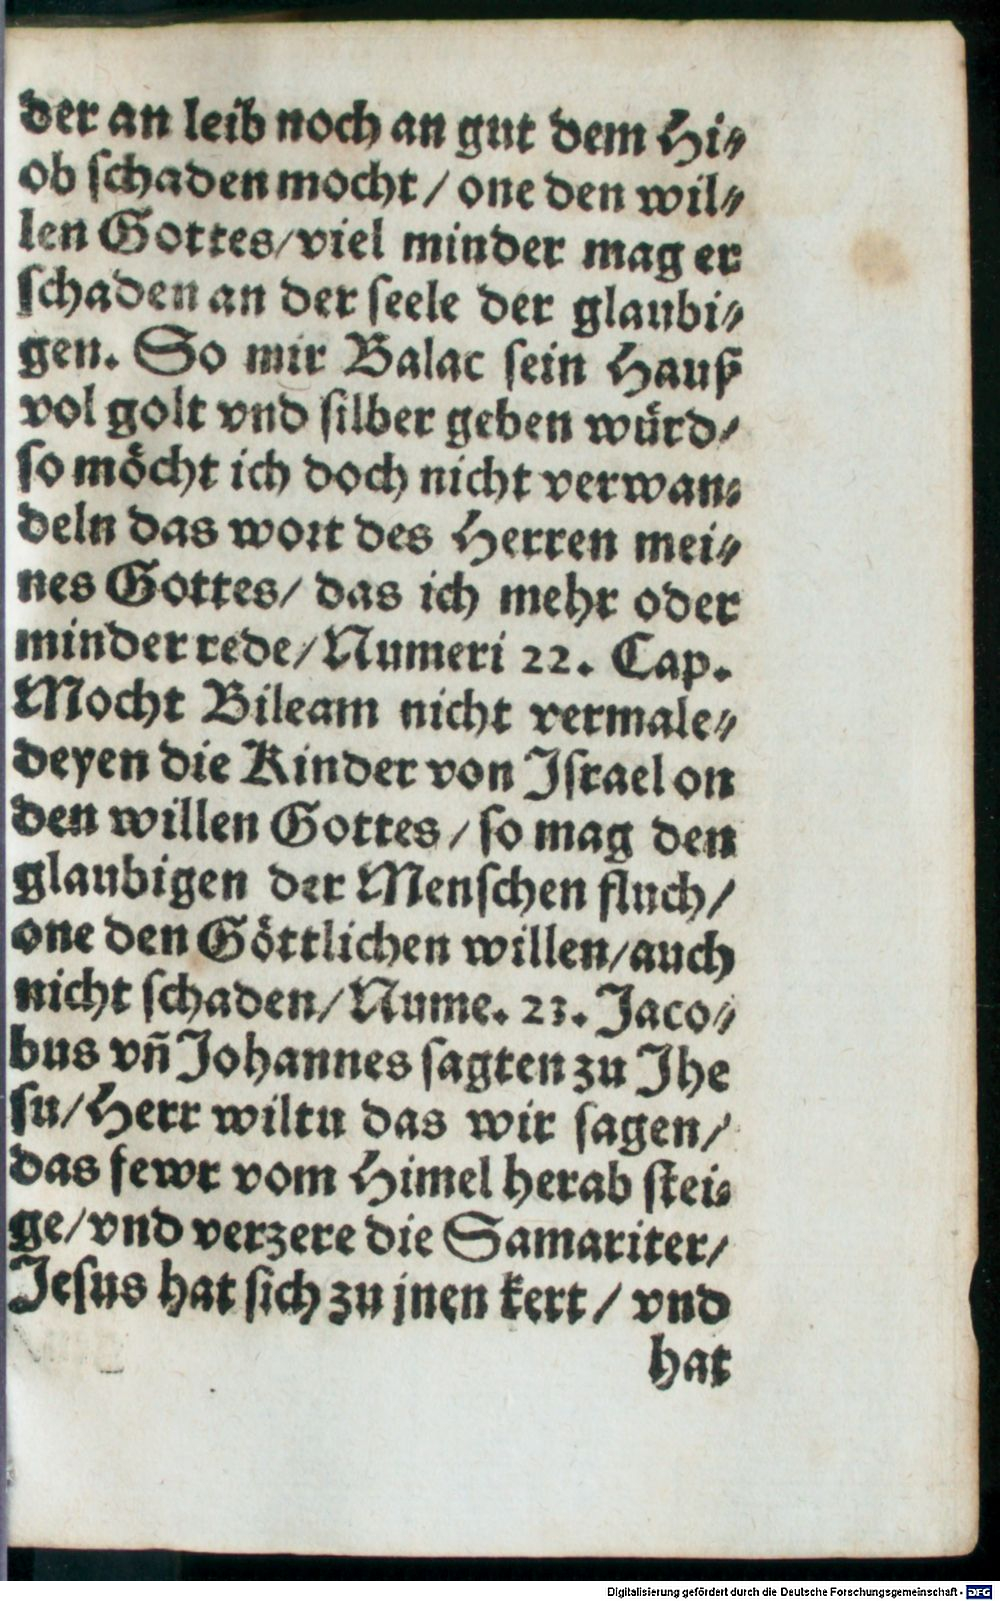 der an leib noch an gut dem Hi⸗
ob schaden mocht / one den wil⸗
len Gottes/viel minder mag er
schaden an der seele der glaubi⸗
gen. So mir Balac sein Hauß
vol golt vnd silber geben würd/
so möcht ich doch nicht verwan⸗
deln das wort des Herren mei⸗
nes Gottes/ das ich mehr oder
minder rede/Numeri 22. Cap.
Mocht Bileam nicht vermale⸗
deyen die Kinder von Israel on
den willen Gottes / so mag den
glaubigen der Menschen fluch/
one den Göttlichen willen/auch
nicht schaden/Nume. 23. Jaco⸗
bus vñ Johannes sagten zu Jhe
su/Herr wiltu das wir sagen/
das fewr vom Himel herab stei⸗
ge/vnd verzere die Samariter/
Jesus hat sich zu jnen kert / vnd
hat
Digitalisierung gefördert durch die Deutsche Forschungsgemeinschaft - DFG